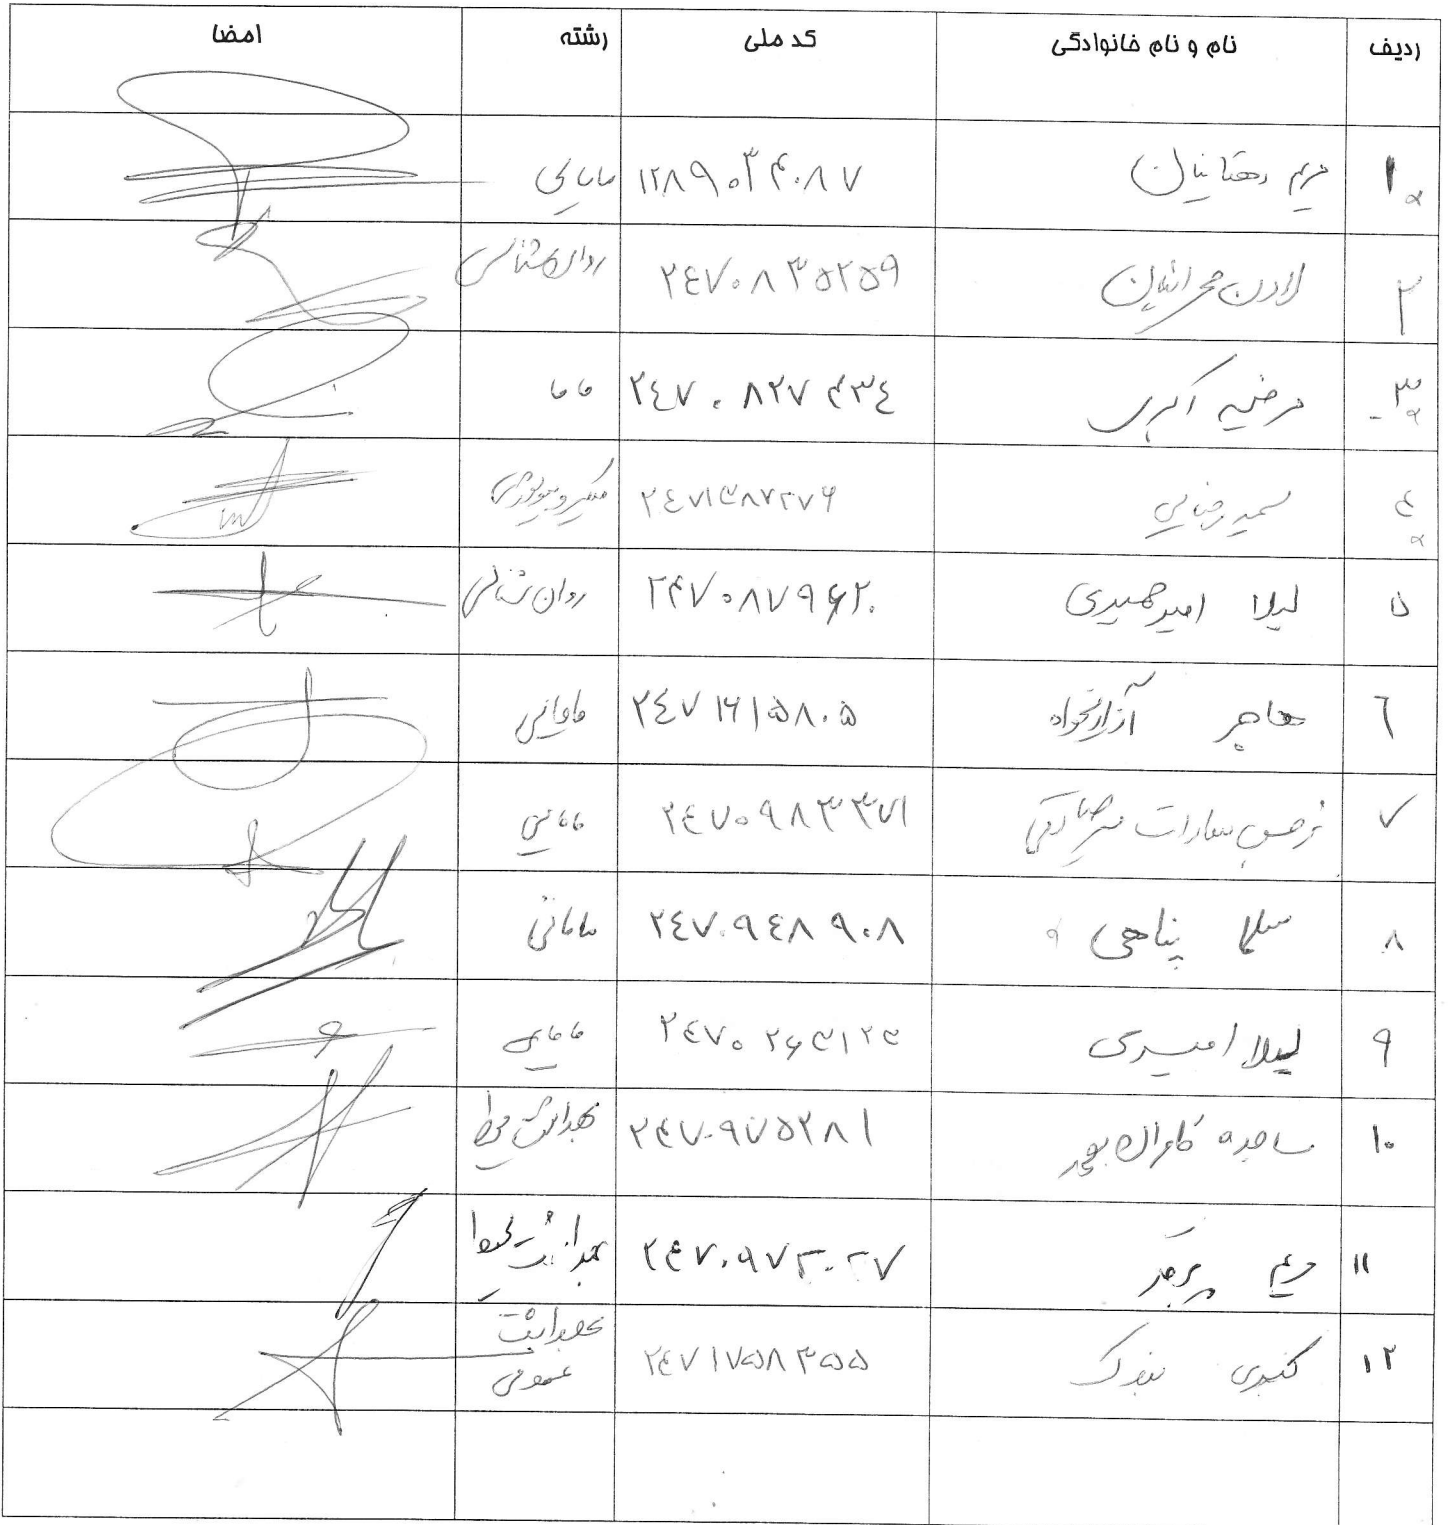 ردیف نام و نام خانوادگی کد ملی رشته امضا
۱ مریم دهقانیان ۱۲۸۹۰۳۴۰۸۷ مامایی
۲ لادن صحرائیان ۲۴۷۰۸۳۵۲۵۹ روان‌شناسی
۳ مرضیه اکبری ۲۴۷۰۸۲۷۴۳۴ ماما
۴ رضایی ۲۴۷۱۳۸۷۲۷۶ میکروبیولوژی
۵ لیلا امیرحمیدی ۲۴۷۰۸۷۹۶۲۰ روان‌شناسی
۶ هاجر آزادیخواه ۲۴۷۱۶۱۵۸۰۵ مامائی
۷ نرجس سادات میرصادقی ۲۴۷۰۹۸۳۳۷۱ مامایی
۸ سلما پناهی ۲۴۷۰۹۴۸۹۰۸ مامائی
۹ لیلا امیری ۲۴۷۰۲۶۳۱۲۳ مامایی
۱۰ ساجده ۲۴۷۰۹۷۵۲۸۱ بهداشت محیط
۱۱ مریم ۲۴۷۰۹۷۲۰۲۷ بهداشت محیط
۱۲ کبری ۲۴۷۱۷۵۸۳۵۵ بهداشت
عمومی